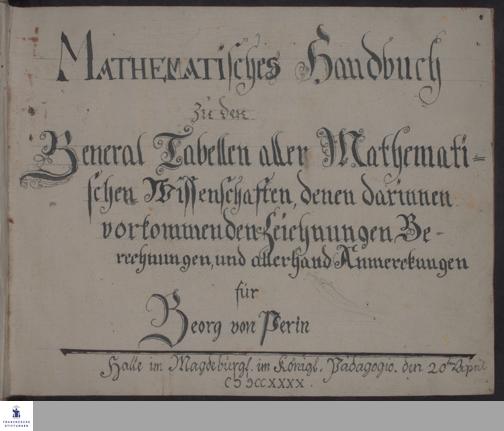 MATHEMATisches Handbuch
zu den
General Tabellen aller Mathemati=
schen Wissenschaften, denen darinnen
vorkommenden Zeichnungen, Be-
rechnungen, und allerhand Anmerckungen
für
Georg von Perin
Halle im Magdeburgl. im Königl. Pädagogio. den 20ten April
CIↃIↃCCXXXX.
FRANCKESCHE
STIFTUNGEN